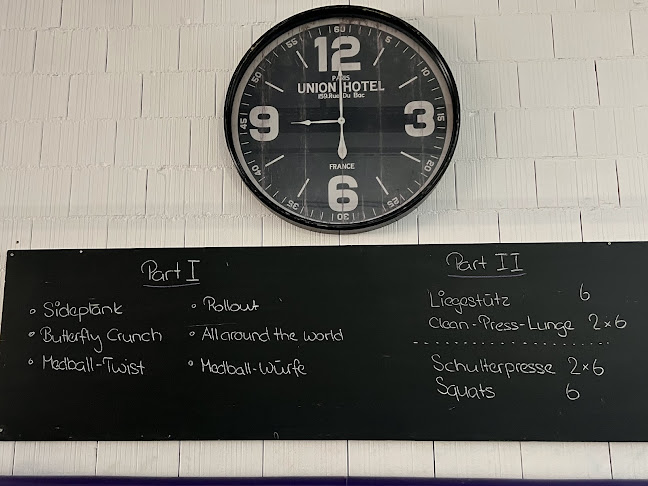 60
55
5
12
50
10
PARIS
UNION HOTEL
159.Rue Du Bac
45
9
3
15
FRANCE
40
20
6
35
25
30
Part I
• Sideplank
• Butterfly Crunch
• Medball-Twist
• Rollout
• All around the world
• Medball-Würfe
Part II
Liegestütz 6
Clean-Press-Lunge 2x6
Schulterpresse 2x6
Squats 6